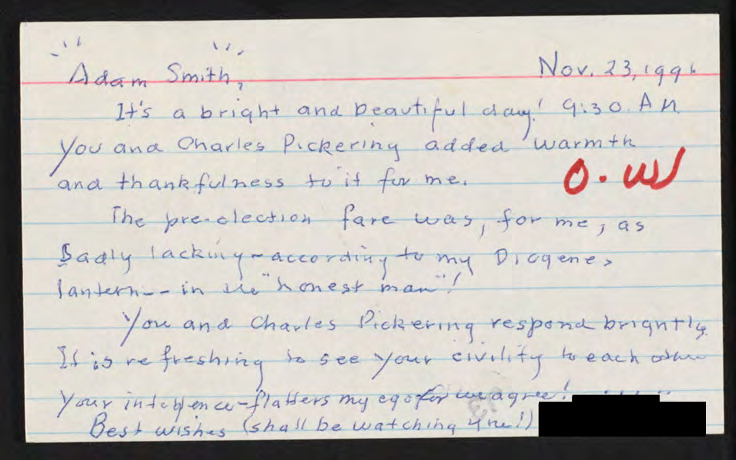 Adam Smith,
Nov. 23, 1996
It's a bright and beautiful day! 9:30 AM
You and Charles Pickering added warmth
and thankfulness to it for me.
O.W
The pre-election fare was, for me, as
Badly lacking - according to my Diogenes
lantern -- in the "honest man"!
You and Charles Pickering respond brightly.
It is refreshing to see your civility to each other
Your intelligence - flatters my ego for we agree!
Best wishes (shall be watching